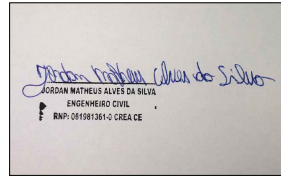 Jordan Matheus Alves da Silva
JORDAN MATHEUS ALVES DA SILVA
ENGENHEIRO CIVIL
RNP: 061981361-0 CREA CE